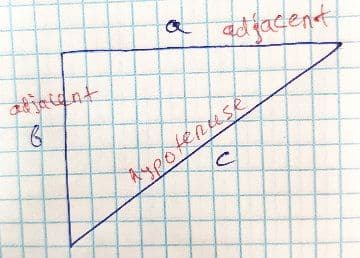 a adjacent
adjacent
b
hypotenuse
c